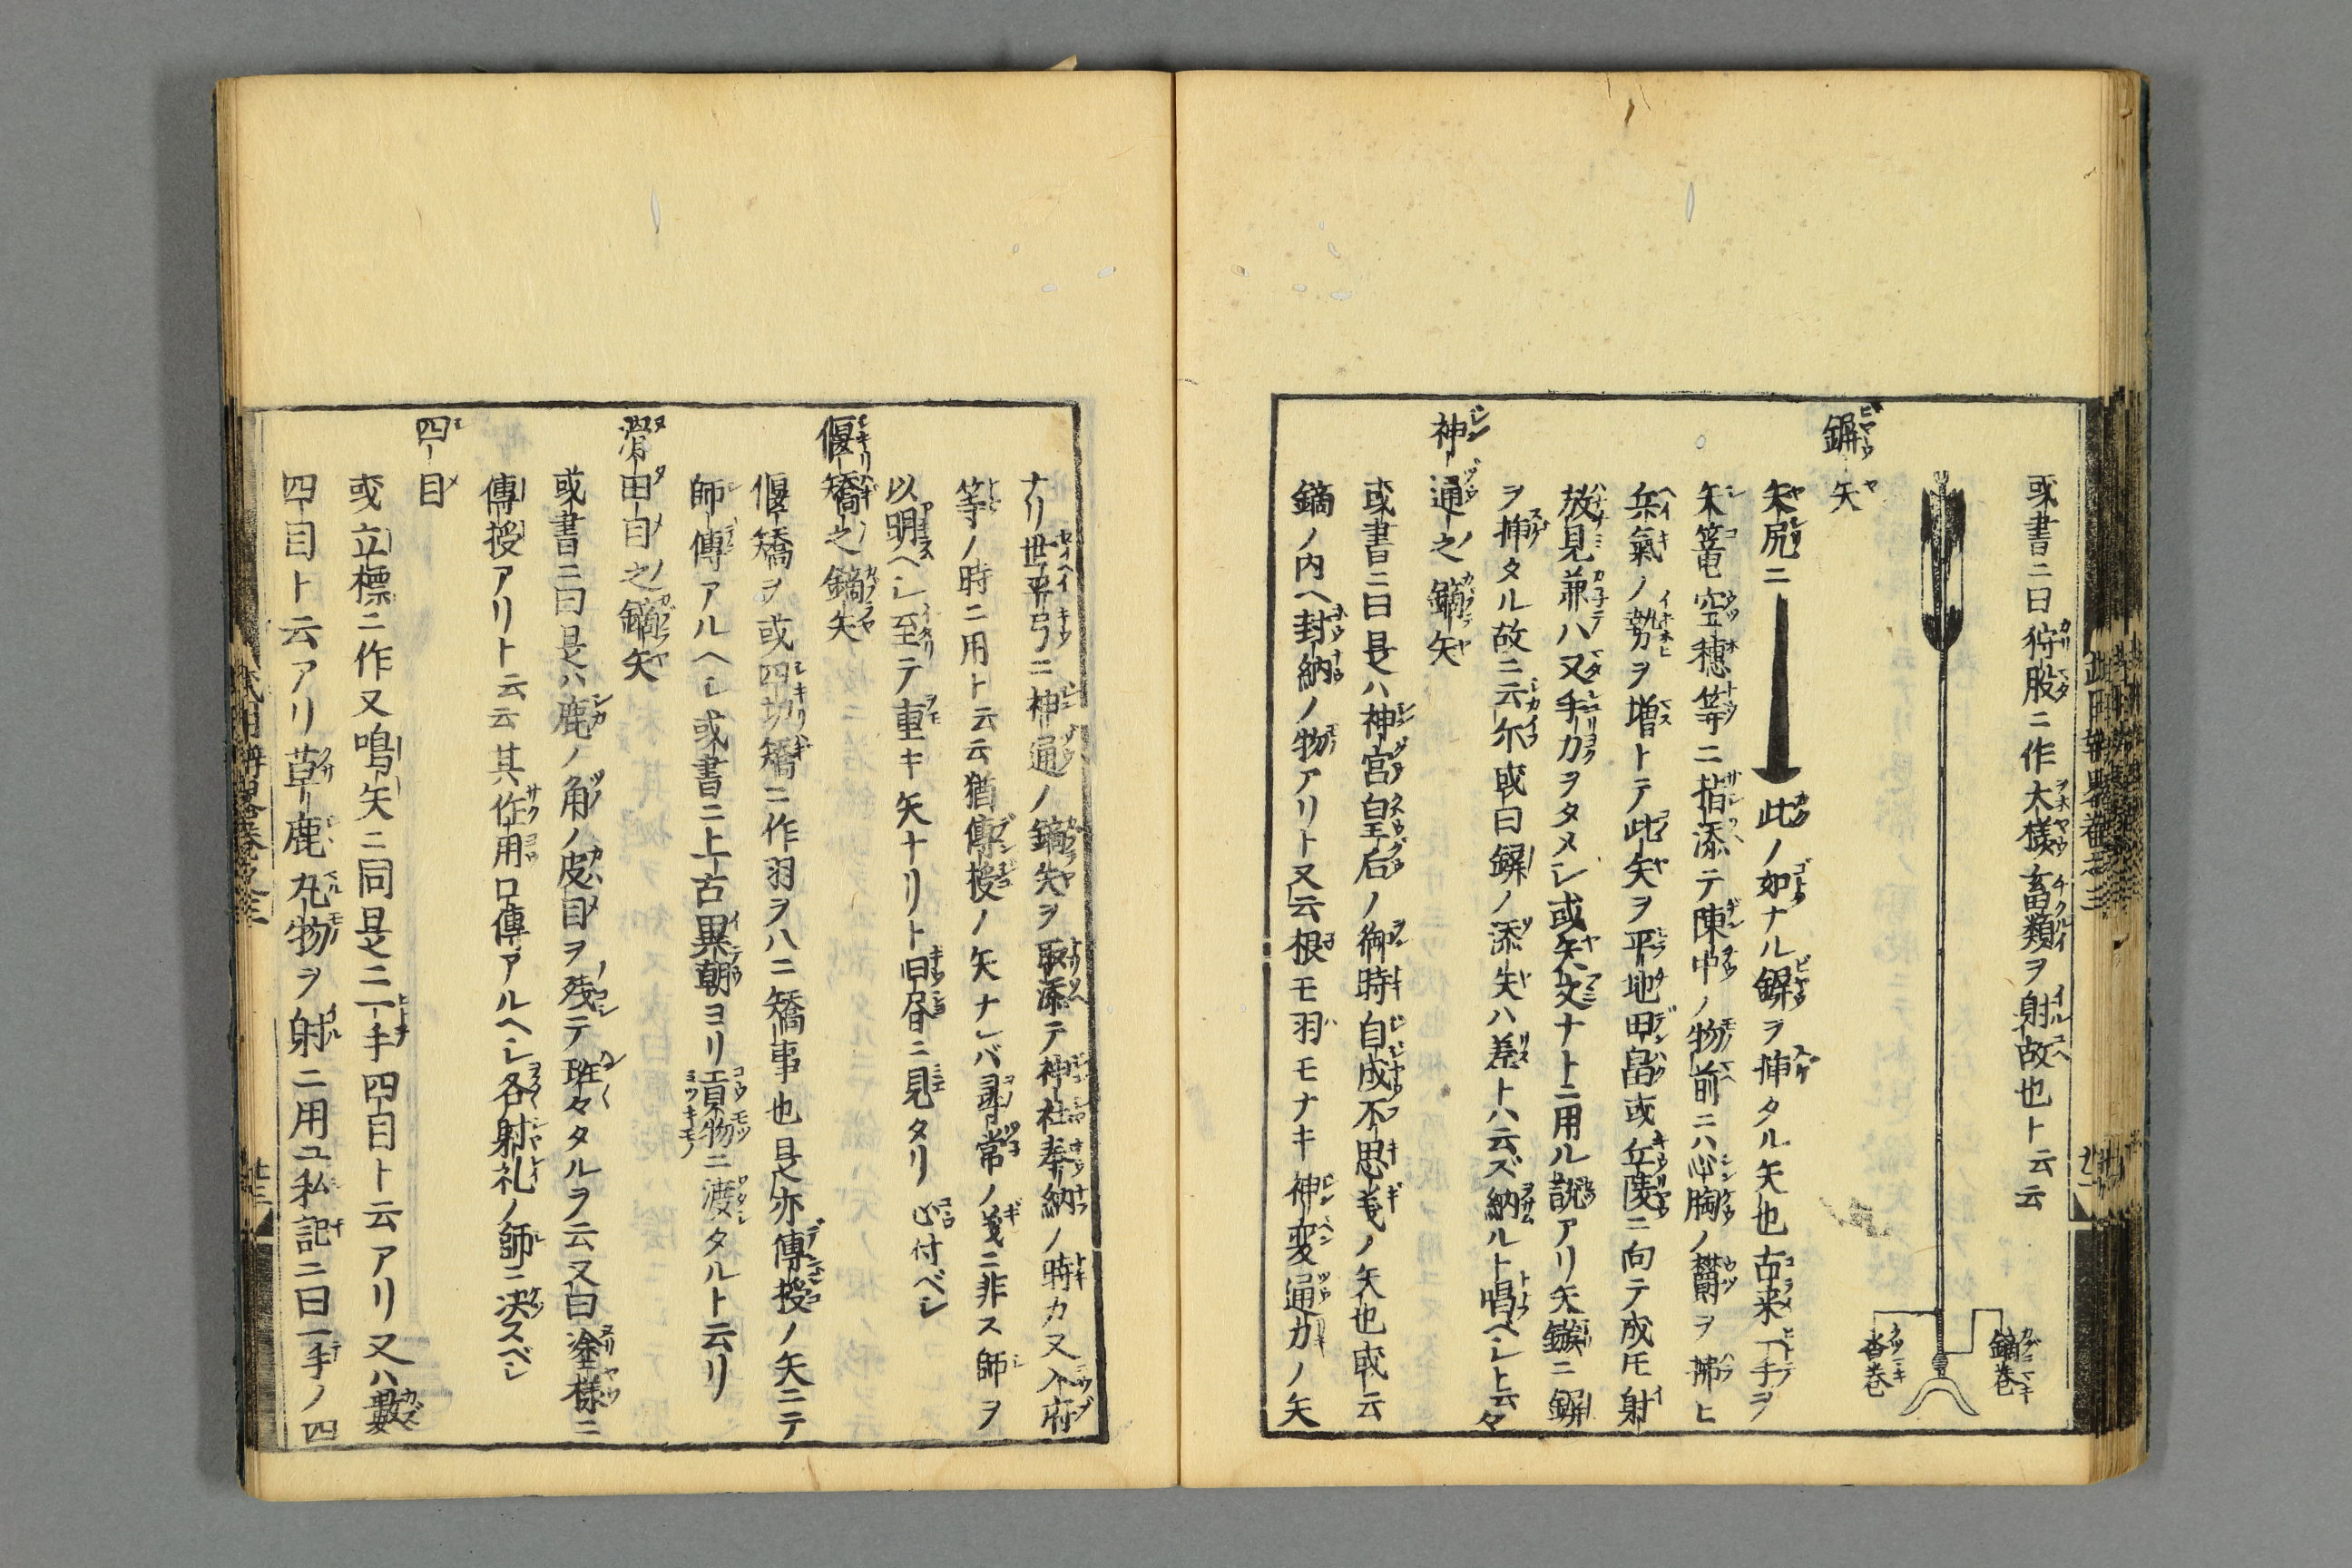 或書ニ曰狩股ニ作大様畜類ヲ射故也ト云云
鏑巻
沓巻
鋛矢
矢尻ニ此ノ如ナル鋛ヲ挿タル矢也古来一手ヲ
矢篭空穂等ニ指添テ陳中ノ物前ニハ心胸ノ欝ヲ拂ヒ
兵氣ノ勢ヲ増トテ此矢ヲ平地田畠或丘陵ニ向テ成圧射
放見兼ハ又手力ヲタメシ或矢文ナトニ用ル説アリ矢鏃ニ鋛
ヲ挿タル故ニ云尓或曰鋛ノ添矢ハ差トハ云ズ納ルト唱ベシト云々
神通之鏑矢
或書ニ曰是ハ神宮皇后ノ御時自成不思義ノ矢也或云
鏑ノ内ヘ封納ノ物アリト又云根モ羽モナキ神変通力ノ矢
ナリ世平弓ニ神通ノ鏑矢ヲ取添テ神社奉納ノ時カ又入府
等ノ時ニ用ト云云猶傳授ノ矢ナレバ尋常ノ義ニ非ス師ヲ
以明ヘシ至テ重キ矢ナリト旧昏ニ見タリ心付ベシ
偃矯之鏑矢
偃矯ヲ或四切矯ニ作羽ヲハニ矯事也是亦傳授ノ矢ニテ
師傳アルヘシ或書ニ上古異朝ヨリ貢物ニ渡タルト云リ
滑由目之鏑矢
或書ニ曰是ハ鹿ノ角ノ皮目ヲ残テ踓々タルヲ云又曰塗様ニ
傳授アリト云云其作用口傳アルヘシ各射礼ノ師ニ决スベシ
四目
或立標ニ作又鳴矢ニ同是ニ一手四目ト云アリ又ハ數
四目ト云アリ草鹿丸物ヲ射ニ用ユ私記ニ曰一手ノ四